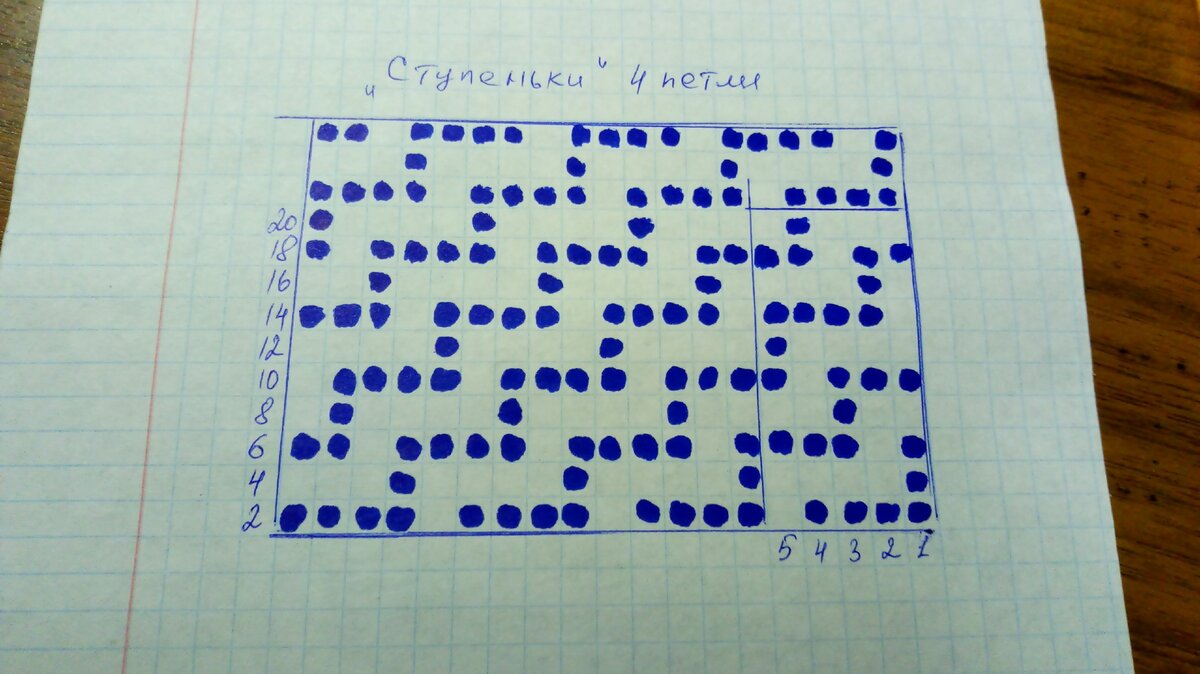 „Ступеньки" 4 петли
20
18
16
14
12
10
8
6
4
2
5 4 3 2 1